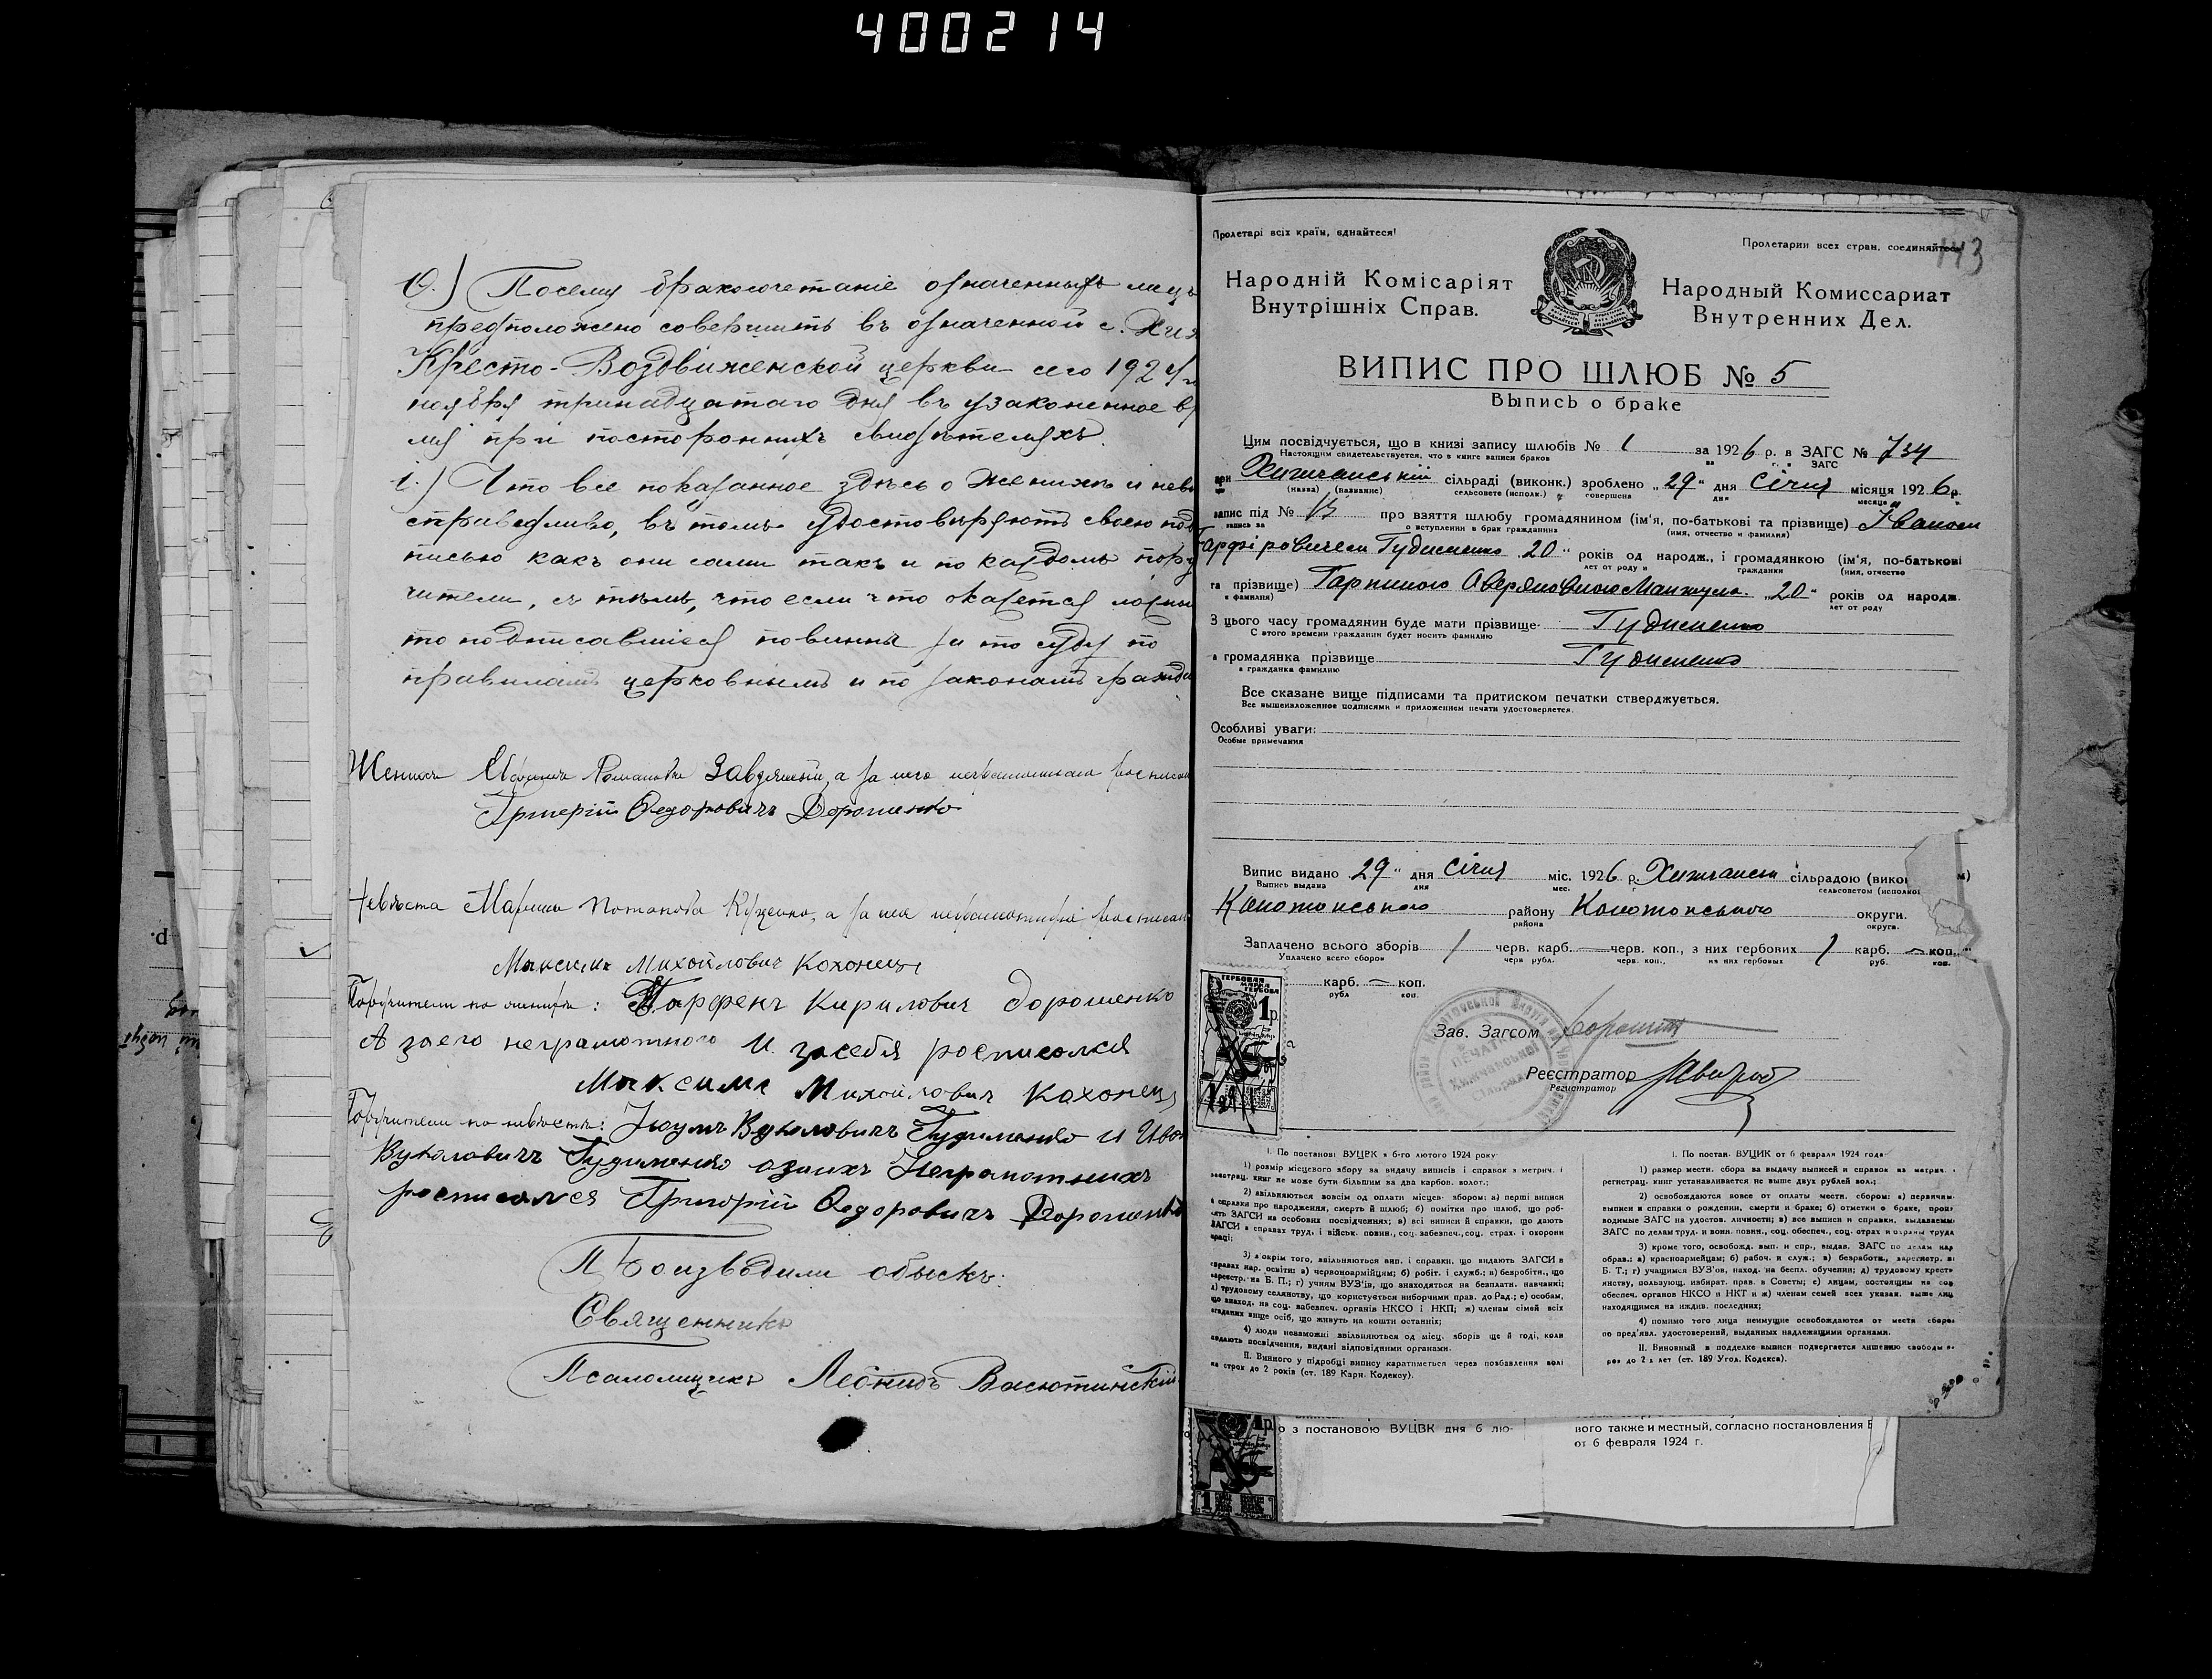 400214
10.) Посему бракосочетаніе означенныхъ лицъ
предположено совершить въ означенной с.
Кресто-Воздвиженской церкви сего 1924 г
ноября тринадцатаго дня въ узаконенное вр
мя при постороннихъ свидѣтеляхъ.
i.) Что все показанное здѣсь о женихѣ и невѣ
справедливо, въ томъ удостовѣряютъ своею под
писью какъ они сами такъ и по каждомъ пору
чители, съ тѣмъ, что если что окажется ложны
то подписавшіеся повинны за то суду по
правиламъ церковнымъ и по законамъ гражда
Женихъ Романовъ а за него неграмотнаго росписал
Григорій Ѳедоровичъ Дорошенко
Невѣста Потапова а за нея неграмотную росписал
Максимъ Михойлович Кохонец
Поручители по женихѣ: Парфенъ Кирилович Дорошенко
А заего неграмотного И засебя росписолся
Максимъ Михойлович Кохонец
Поручители по невѣстѣ: Наумъ Вуколовичъ Гудименко и Иван
Вуколовичъ Гудименко озаихъ Неграмотнихъ
росписался Григорій Ѳедоровичъ Дорошенко
Производили обыскъ:
Священникъ
Псаломщикъ Леонидъ Васютинскій
143
Пролетарі всіх країн, єднайтеся!
Пролетарии всех стран, соединяйтесь
Народній Комісаріят
Внутрішніх Справ.
Народный Комиссариат
Внутренних Дел.
ВИПИС ПРО ШЛЮБ № 5
Выпись о браке
Цим посвідчується, що в книзі запису шлюбів № 1 за 1926 р. в ЗАГС № 734
Настоящим свидетельствуется, что в книге записи браков за г. в ЗАГС
при Хижчанській сільраді (виконк.) зроблено „29" дня Січня місяця 1926 р.
(назва) (название) сельсовете (исполк.) совершена дня месяца
запис під № про взяття шлюбу громадянином (ім'я, по-батькові та прізвище) Іваном
запись за о вступлении в брак гражданина (имя, отчество и фамилия)
Гудименко 20" років од народж., і громадянкою (ім'я, по-батькові
лет от роду и гражданки (имя, отчество
та прізвище) Гарпиною Оверяновною Манжула „20" років од народж.
и фамилия) лет от роду
З цього часу громадянин буде мати прізвище Гудименко
С этого времени гражданин будет носить фамилию
а громадянка прізвище Гудименко
а гражданка фамилию
Все сказане вище підписами та притиском печатки стверджується.
Все вышеизложенное подписями и приложением печати удостоверяется.
Особливі уваги:
Особые примечания
Випис видано „29" дня Січня міс. 1926 р. Хижчанськ сільрадою (вико
Выпись выдана дня мес. г. сельсоветом (исполко
Конотопського району Конотопського округи.
района округа.
Заплачено всього зборів 1 черв. карб. — черв. коп., з них гербових 1 карб. — коп.
Уплачено всего сборов черв рубл. черв. коп., из них гербовых руб. коп.
карб. — коп.
рубл коп.
ГЕРБОВАЯ
МАРКА
ГЕРБОВА
1р.
Зав. Загсом
Реєстратор
Регистратор
I. По постанові ВУЦВК з 6-го лютого 1924 року
1) розмір місцевого збору за видачу виписів і справок з метрич. і
реєстрац. книг не може бути більшим за два карбов. волот.;
2) звільняються зовсім од оплати місцев. збором: а) перші виписи
й справки про народження, смерть й шлюб; б) помітки про шлюб, що роб-
лять ЗАГСИ на особових посвідченнях; в) всі виписи й справки, що дають
ЗАГСИ в справах труд. і військ. повин., соц. забезпеч., соц. страх. і охорони
праці;
3) а окрім того, звільняються вип. і справки, що видають ЗАГСИ в
справах нар. освіти: а) червоноармійцям; б) робіт. і служб.; в) безробітн., що
зареєстр. на Б. П.; г) учням ВУЗ'ів, що знаходяться на безплатн. навчанні;
д) трудовому селянству, що користується виборчими прав. до Рад.; е) особам,
що знаход. на соц. забезпеч. органів НКСО і НКП; ж) членам сімей всіх
згаданих вище осіб, що живуть на кошти останніх;
4) люди незаможні звільняються од місц. зборів ще й тоді, коли
подають посвідчення, видані відповідними органами.
II. Винного у підробці випису каратиметься через позбавлення волі
на строк до 2 років (ст. 189 Карн. Кодексу).
I. По постан. ВУЦИК от 6 февраля 1924 года
1) размер местн. сбора за выдачу выписей и справок из метрич. и
регистрац. книг устанавливается не выше двух рублей вол.;
2) освобождаются вовсе от оплаты местн. сбором: а) первичн
выписи и справки о рождении, смерти и браке; б) отметки о браке, произ
водимые ЗАГС на удостов. личности; в) все выписи и справки, выдаваемы
ЗАГС по делам труд. и воин. повин., соц. обеспеч., соц. страх и охраны труда
3) кроме того, освобожд. вып. и спр., выдав. ЗАГС по делам нар
образ.: а) красноармейцам; б) рабоч. и служ.; в) безработн., зарегистр. в
Б. Т.; г) учащимся ВУЗ'ов, наход. на беспл. обучении; д) трудовому крестя
янству, пользующ. избират. прав. в Советы; е) лицам, состоящим на соц
обеспеч. органов НКСО и НКТ и ж) членам семей всех указан. выше лиц
находящимся на иждив. последних;
4) помимо того лица неимущие освобождаются от местн сборов
по пред'явл. удостоверений, выданных надлежащими органами.
II. Виновный в подделке выписи подвергается лишению свободы в
рок до 2 х лет (ст. 189 Угол. Кодекса).
о з постановою ВУЦВК дня 6 лю-
вого также и местный, согласно постановления В
от 6 февраля 1924 г.